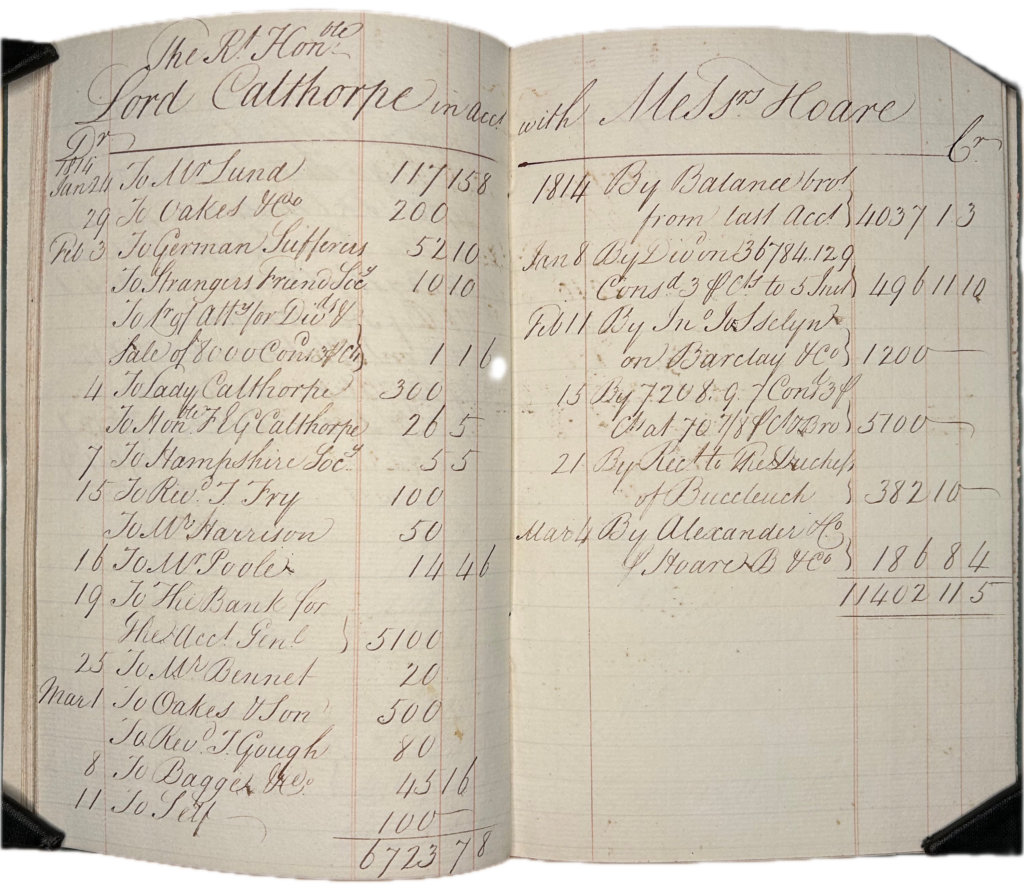 The Rt. Honble
Lord Calthorpe in acct.
Dr
1814
Jan 24 To Mr Lund 117 15 8
29 To Oakes & Co 200
Feb 3 To German Sufferers 52 10
To Strangers Friend Socy 10 10
To Lr of Atty for Divd &
Sale of 8000 Cons 3 ⅌ Ct } 1 1 6
4 To Lady Calthorpe 300
To Honble F & G Calthorpe 26 5
7 To Hampshire Socy 5 5
15 To Revd J Fry 100
To Mr Harrison 50
16 To Mr Poole 14 4 6
19 To The Bank for
the Acct. Genl } 5100
25 To Mr Bennet 20
Mar 1 To Oakes & Son 500
To Revd J. Gough 80
8 To Bagget & Co. 45 16
11 To Self 100 —
6723 7 8
with Messrs Hoare
Cr
1814 By Balance brot
from last Acct } 4037 1 3
Jan 8 By Div on 36784.12 9
Consd 3 ⅌ Cts to 5 Inst } 496 11 10
Feb 11 By Jno Josselyn
on Barclay & Co } 1200 —
15 By 7208. 9. 7 Cons 3 ⅌
Ct at 70 7/8 ⅌ Ct Bro } 5100 —
21 By Rect to The Duchess
of Buccleuch } 382 10 —
Mar 4 By Alexander & Co
⅌ Hoare B & Co } 186 8 4
11402 11 5